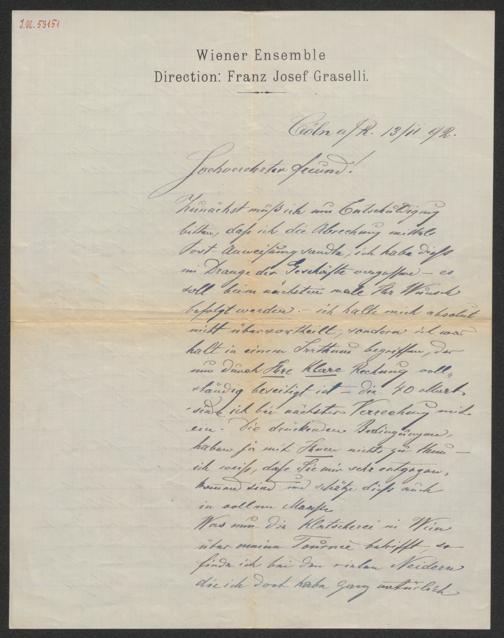 I.N. 53151
Wiener Ensemble
Direction: Franz Josef Graselli.
Cöln a/R. 13/II 92.
Hochverehrter Freund!
Zunächst muß ich um Entschuldigung
bitten, daß ich die Abrechnung mittels
Post Anweisung sandte, ich habe dieß
im Drange der Geschäfte vergessen – es
soll beim nächsten male Ihr Wunsch
befolgt werden. – ich halte mich absolut
nicht übervortheilt, sondern ich war
halt in einem Irrthum begriffen, der
nun durch Ihre klare Rechnung voll-
ständig beseitigt ist – die 40 Mark
sende ich bei nächster Verrechnung mit
ein. Die drückenden Bedingungen,
haben ja mit Ihnen nichts zu thun –
ich weiß, daß Sie mir sehr entgegen,
kommend sind und schätze dieß auch
in vollem Maaße.
Was nun die Klatscherei in Wien
über meine Tournée betrifft – so
finde ich bei den vielen Neidern
die ich dort habe ganz natürlich